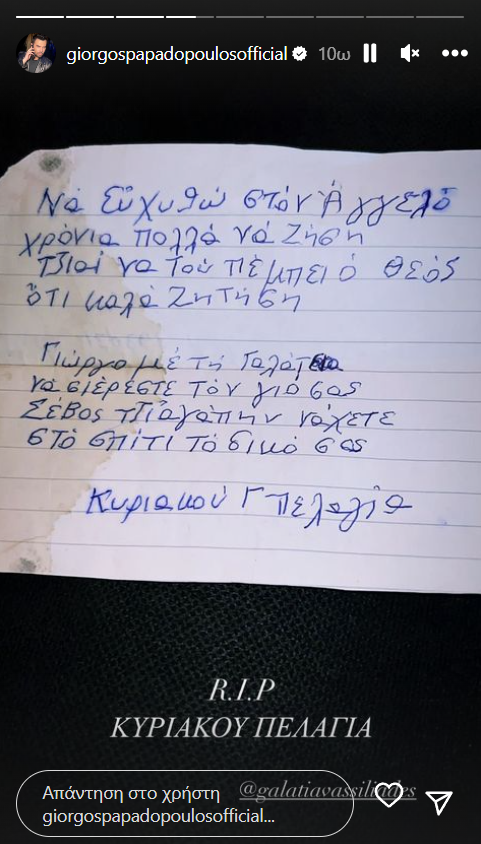 giorgospapadopoulosofficial 10ω
Νά Εὐχυθώ στόν Ἄγγελο
χρόνια πολλά νά Ζήση
τζιαί να τού πέμπει ὁ Θεός
ὅτι καλά Ζητήση
Γιώργο μέ τή Γαλάτεια
νά σιέρεστε τόν γιό σας
Σέβος τζι̕ἀγάπην νάχετε
στό σπίτι τό δικό σας
Κυριακού Γ Πελαγία
R.I.P
ΚΥΡΙΑΚΟΥ ΠΕΛΑΓΙΑ
@galatiavassiliades
Απάντηση στο χρήστη
giorgospapadopoulosofficial...